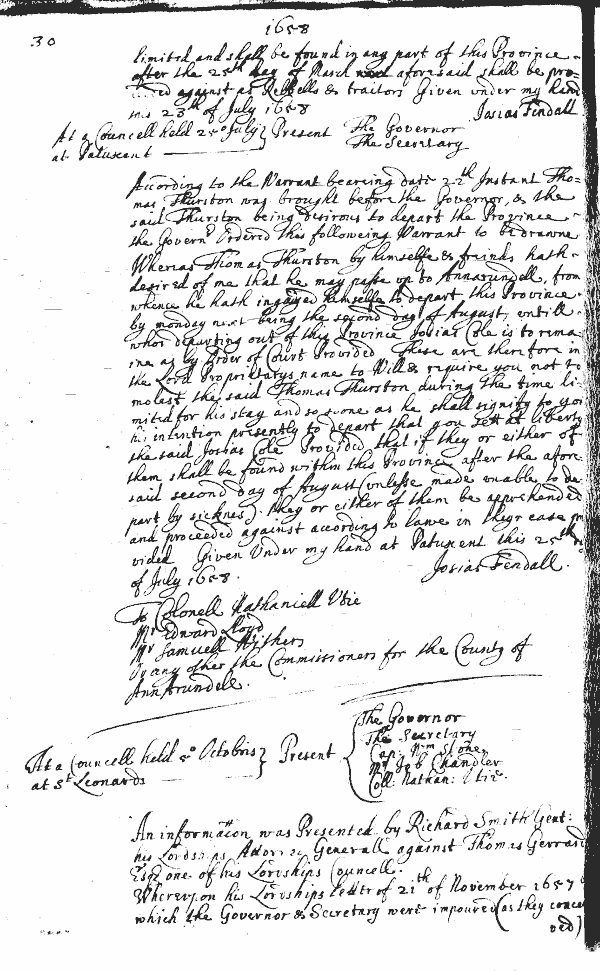 30
1658
limited and shall be found in any part of this Province
after the 25th day of March next aforesaid shall be pro=
against as Rebells & traitors Given under my hand
this 23th of July 1658
Josias Fendall
At a Councell held 25o July } Present The Governor
at Patuxent The Secretary
According to the Warrant beareing date 22th Instant Tho=
mas Thurston was brought before the Governor, & the
said Thurston being desirous to depart the Province
the Governr Ordered this followeing Warrant to be drawne
Whereas Thomas Thurston by himselfe & freinds hath
desired of me that he may passe up to Annarundell, from
whence he hath ingaged himselfe to depart this Province
by monday next being the second day of August, untill
whos departing out of this Province Josias Cole is to rema=
ine as by Order of Court Provided These are therefore in
the Lord Proprietarys name to Will & require you not to
molest the said Thomas Thurston during the time li=
mited for his stay and so soone as he shall signify to you
his intention presently to depart that you sett at liberty
the said Josias Cole Provided that if they or either of
them shall be found within this Province after the afore
said second day of August (unlesse made unable to de
part by sicknes) they or either of them be apprehended
and proceeded against according to lawe in theyr case pro
vided Given Under my hand at Patuxent this 25th
of July 1658.
Josias Fendall.
To Colonell Nathaniell Utie
Mr Edward Lloyd
Mr Samuell Withers
Or any other the Commissioners for the County of
AnnArundell.
At a Councell held 5o Octobris } Present
at St Leonards
The Governor
The Secretary
Cap: Wm Stone,
Mr Job Chandler
Coll: Nathan: Utie.
An informacon was Presented by Richard Smith Gent:
his Lordships Attorney Generall against Thomas Gerrard
Esqr one of his Lordships Councell.
Whereupon his Lordships letter of 21th of November 1657
which the Governor & Secretary were impoured (as they concei
ved)